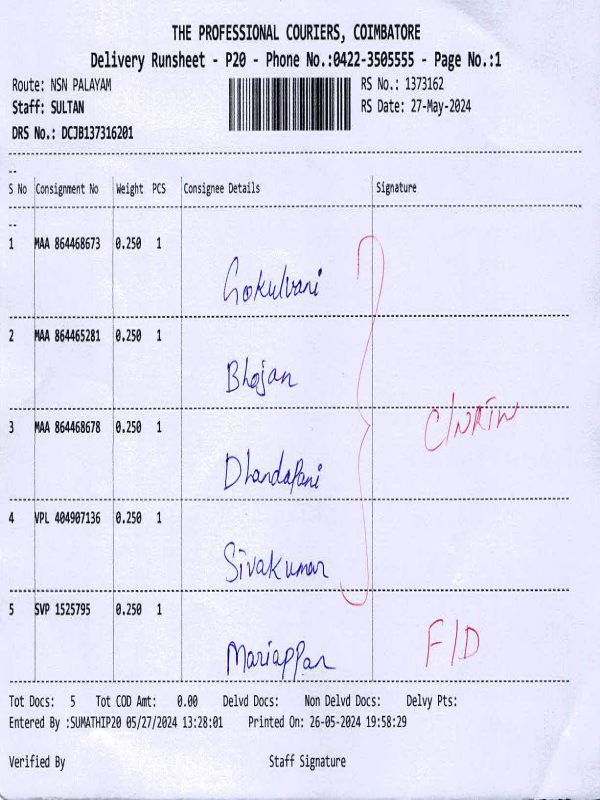 THE PROFESSIONAL COURIERS, COIMBATORE
Delivery Runsheet - P20 - Phone No.:0422-3505555 - Page No.:1
Route: NSN PALAYAM RS No.: 1373162
Staff: SULTAN RS Date: 27-May-2024
DRS No.: DCJB137316201
--
S No Consignment No Weight PCS Consignee Details Signature
--
1 MAA 864468673 0.250 1
Gokulvani
2 MAA 864465281 0.250 1
Bhojan
3 MAA 864468678 0.250 1
Dhandapani
4 VPL 404907136 0.250 1
Sivakumar
5 SVP 1525795 0.250 1
Mariappan F/D
Tot Docs: 5 Tot COD Amt: 0.00 Delvd Docs: Non Delvd Docs: Delvy Pts:
Entered By :SUMATHIP20 05/27/2024 13:28:01 Printed On: 26-05-2024 19:58:29
Verified By Staff Signature